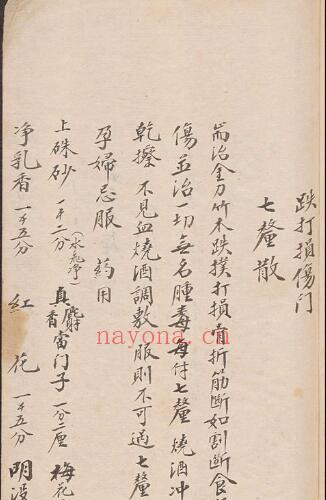 跌打損傷門
七釐散
耑治金刀竹木跌撲打損骨折筋斷如割斷食
傷並治一切無名腫毒每付七釐燒酒冲
乾摻不見血燒酒調敷服則不可過七釐
孕婦忌服 药用
上硃砂一千二分(水飛淨)真麝香當门子一分二厘梅花
净乳香一千五分 紅花一千五分 明没
nayona.cn